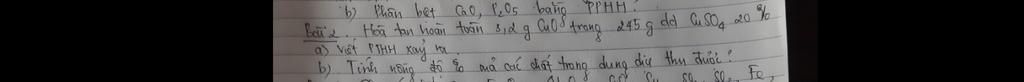 b) Phân bẹt CaO, P2O5 bằng PTHH
Bài 2. Hoà tan hoàn toàn 3,2 g CuO trong 245 g dd CuSO4 20 %
a) viết PTHH xảy ra
b) Tính nồng độ % mả các chất trong dung dịy thu được?